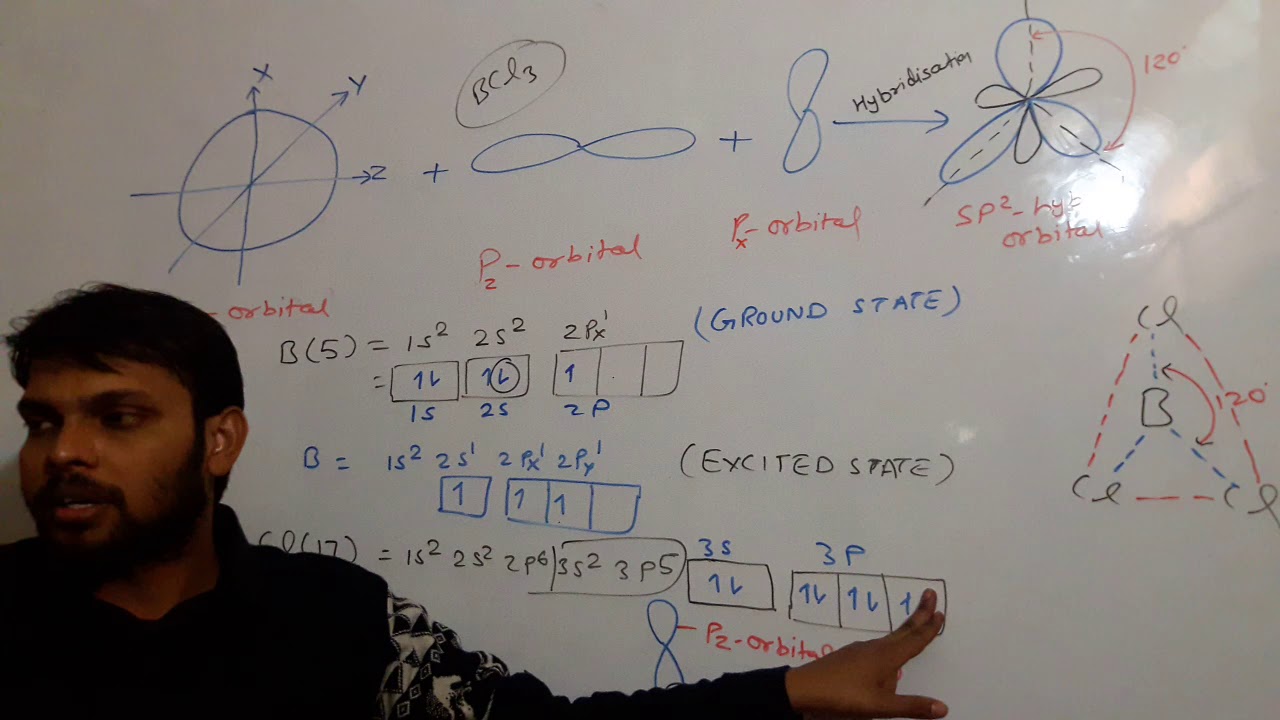 X
Y
Z
BCl3
+
+
Hybridisation
120°
- orbital
Pz - orbital
Px - orbital
SP2 - hyb
orbital
B(5) = 1s2 2s2 2Px1 (GROUND STATE)
= 1↓ 1↓ 1
1s 2s 2P
B = 1s2 2s1 2Px1 2Py1 (EXCITED STATE)
1 1 1
Cl(17) = 1s2 2s2 2p6 3s2 3p5
3s 3P
1↓ 1↓ 1↓ 1
Pz - orbital
Cl
B
120°
Cl Cl